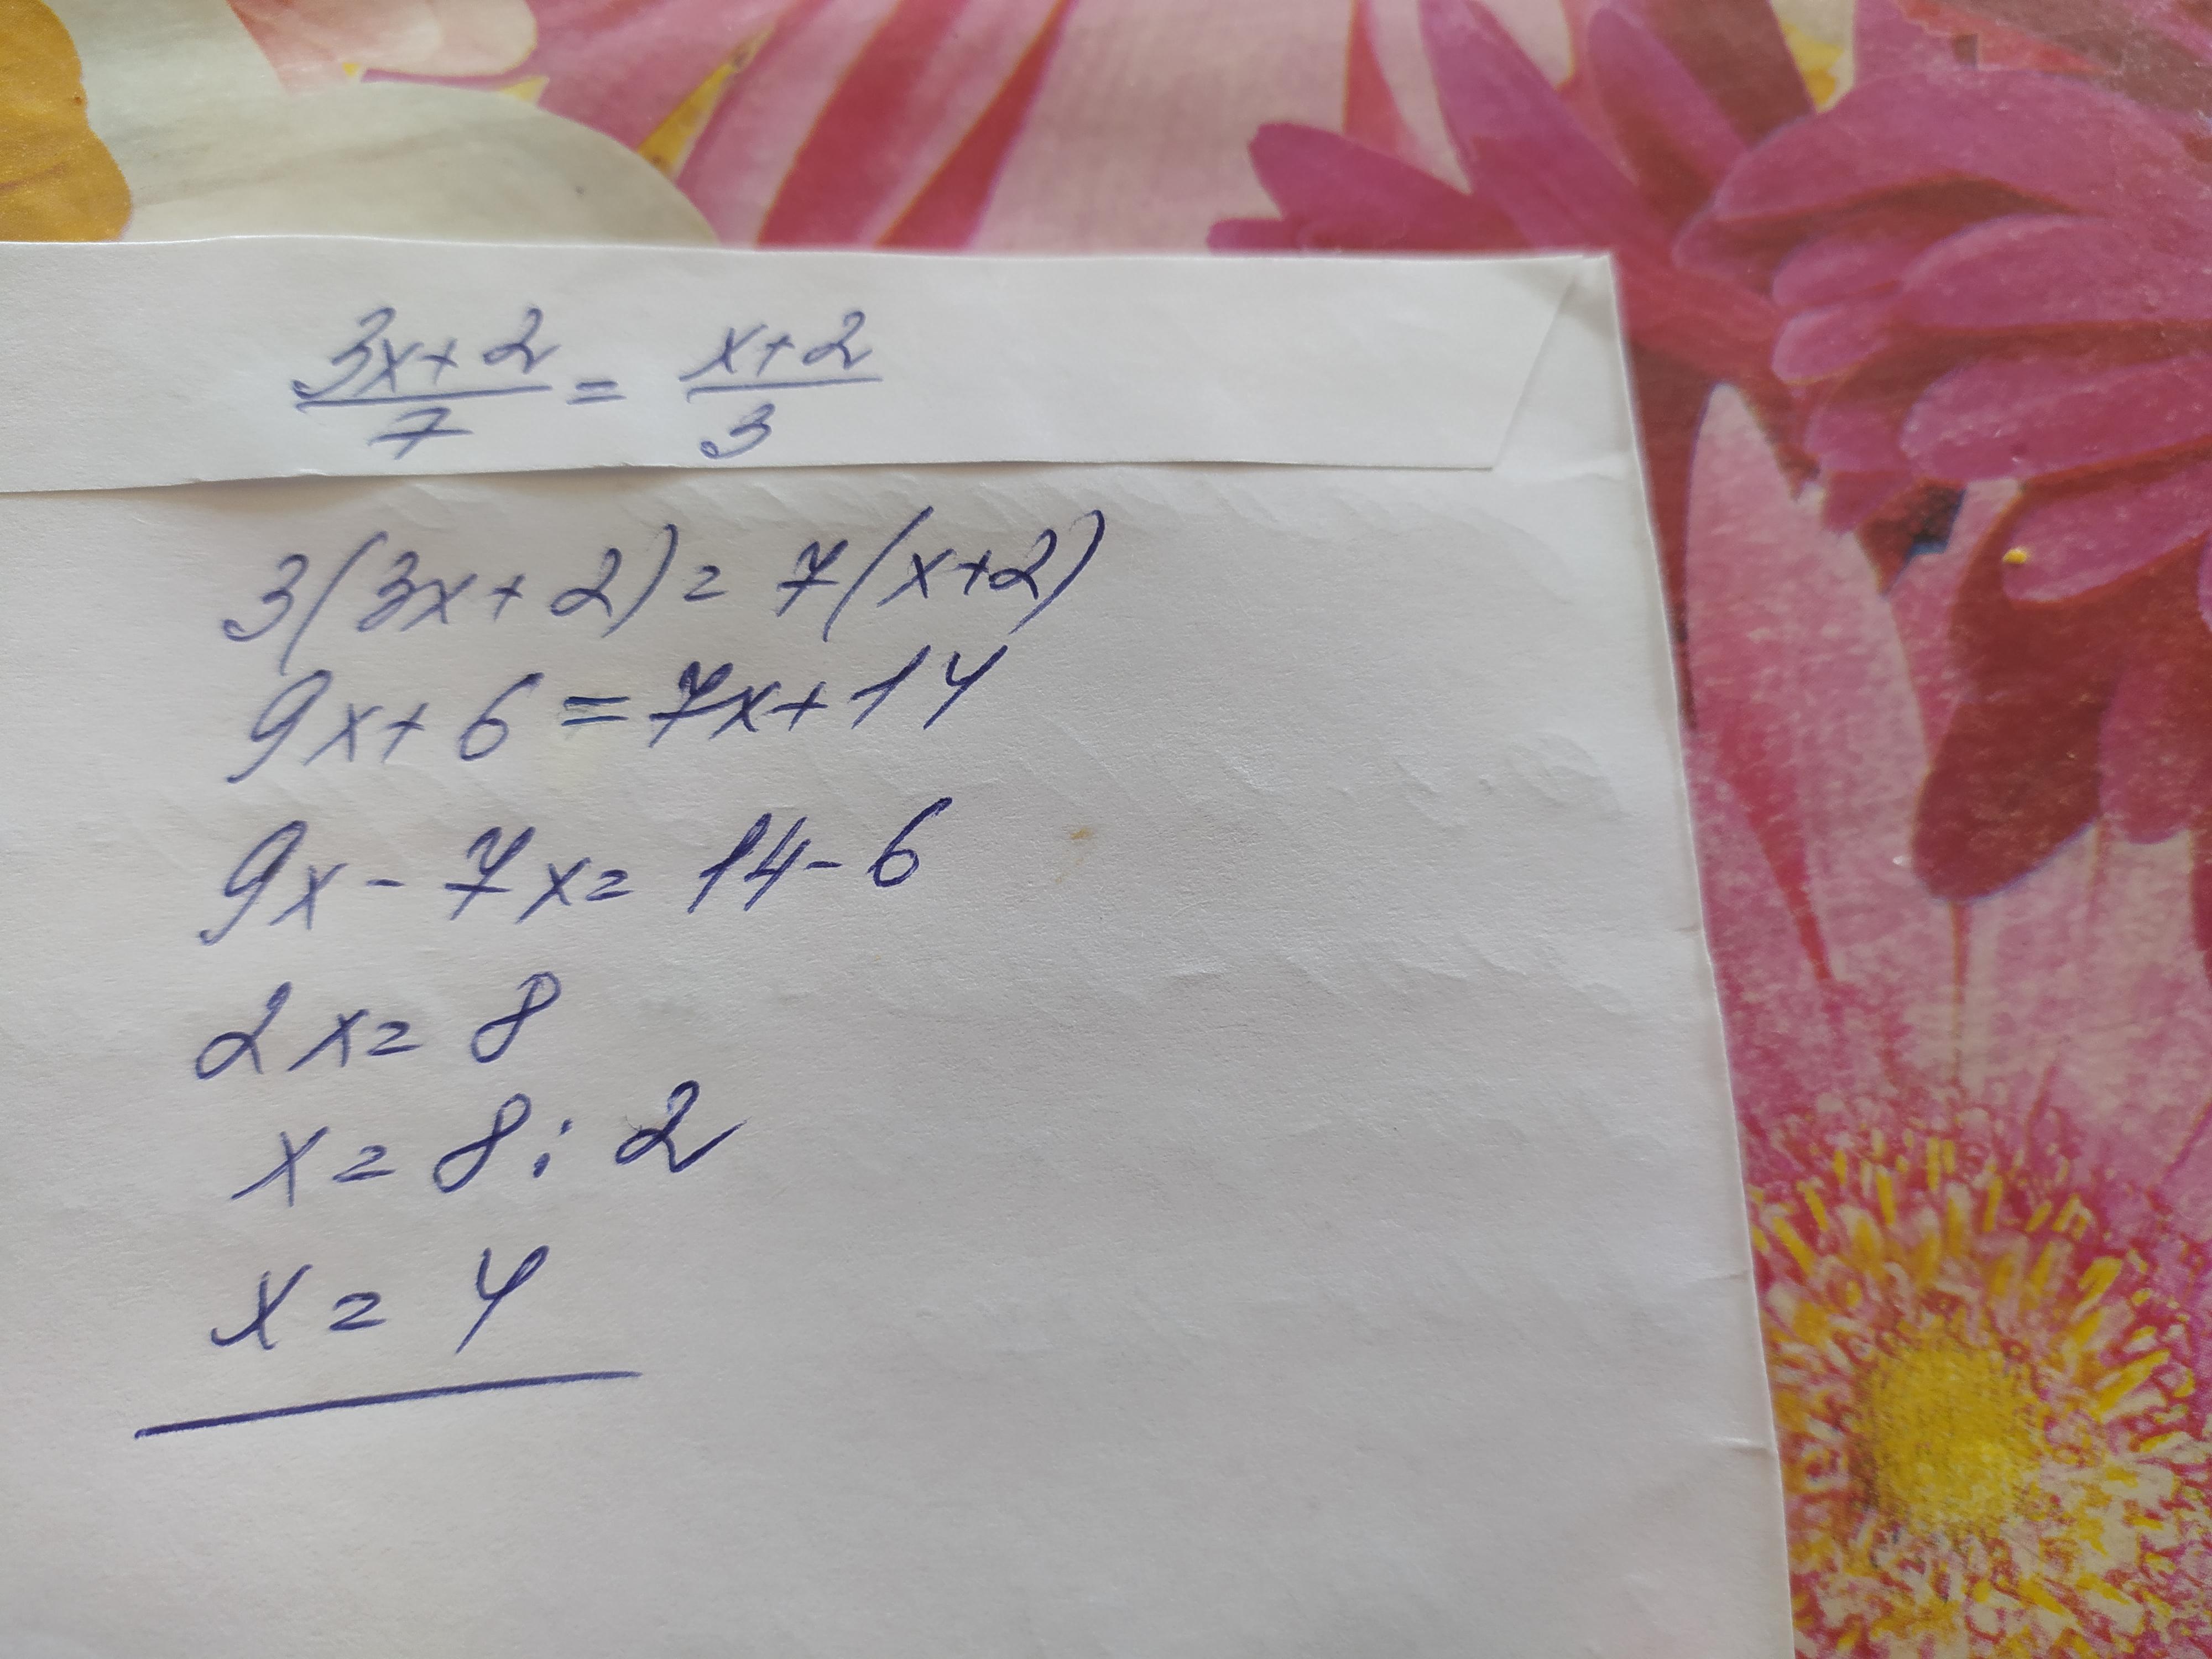 3x+2/7 = x+2/3
3(3x+2)=7(x+2)
9x+6=7x+14
9x-7x=14-6
2x=8
x=8:2
x=4